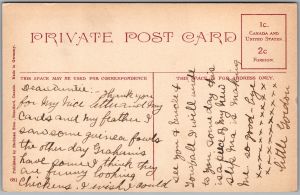 PRIVATE POST CARD
1c.
CANADA AND
UNITED STATES
2c
FOREIGN
THIS SPACE MAY BE USED FOR CORRESPONDENCE
THIS SPACE FOR ADDRESS ONLY.
Dear Auntie: Thank you
for my nice letter and my
cards and my feather I
saw some guinea fowls
the other day Grahams
have some I think they
are funny looking
chickens. I wish I could
see you & uncle &
I will write
to you some day this
is a piece of my new
me so Good bye
little Gordon